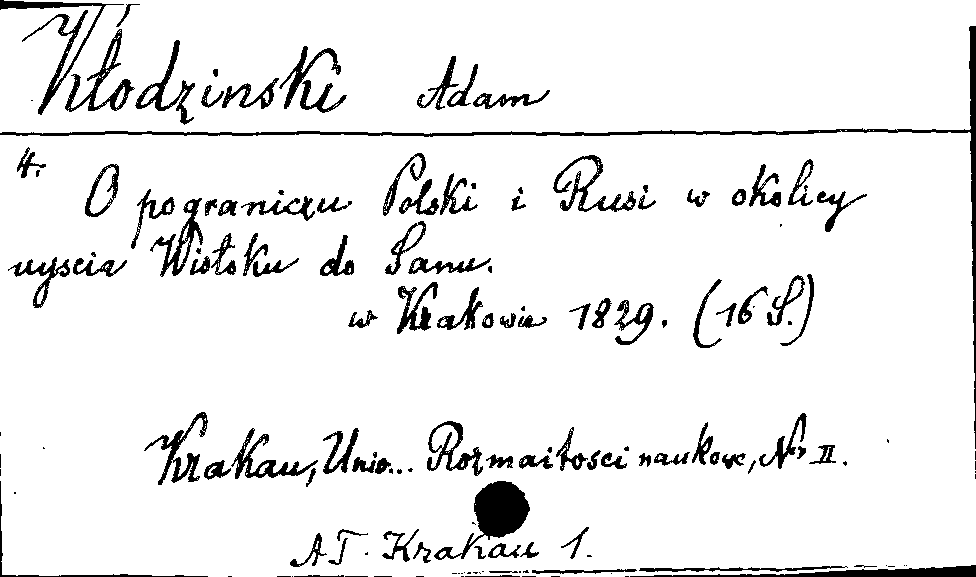 Kłodzinski Adam
4.
O pograniczu Polski i Rusi w okolicy
uyscia Wisłoku do Sanu.
w Krakowie 1829. (16 S.)
Krakau, Univ... Rozmaitosci naukowe, Nr. II.
AT. Krakau 1.